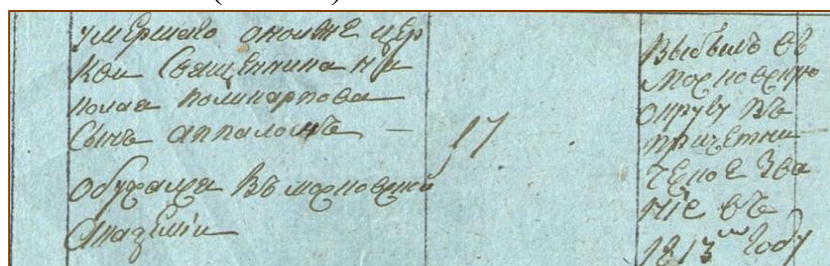 умершаго оноиже цер
кви Священника Ни
колая Поликарпова
Сынъ Апполонъ —
Обучался въ московской
Академіи
17
Выбылъ въ
Московскую
округу въ
причетни
ческое Зва
ніе въ
1813ᵐ Году